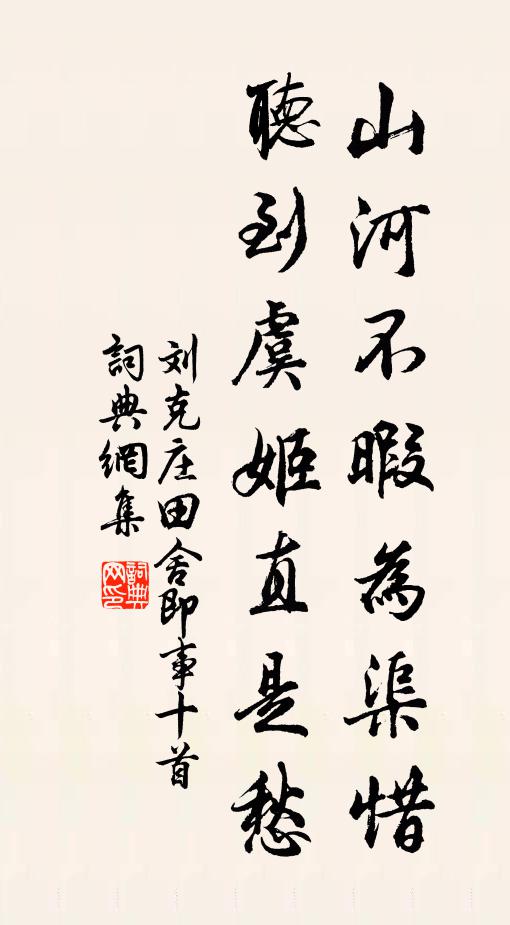 山河不暇為渠惜
聽到虞姬直是愁
刘克庄田舍即事十首
詞典網集
詞典
网印